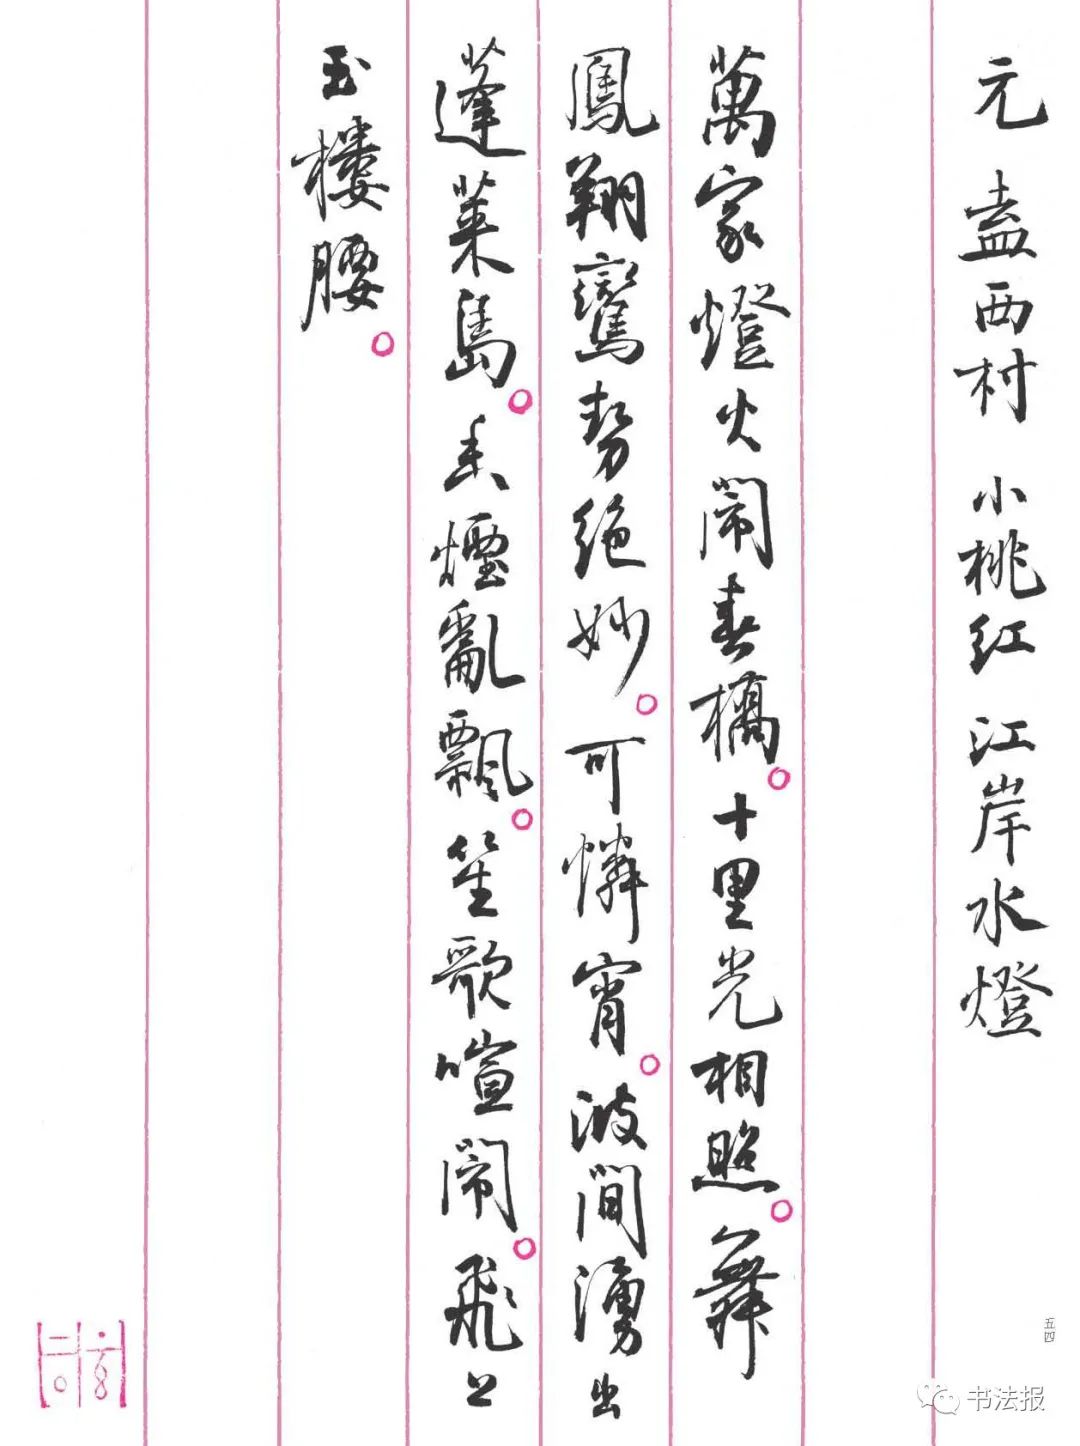 元 盍西村 小桃红 江岸水燈
萬家燈火鬧春橋。十里光相照。舞
鳳翔鸞勢絶妙。可憐宵。波間湧出
蓬萊島。香煙亂飄。笙歌喧鬧。飛上
玉樓腰。
五四
书法报